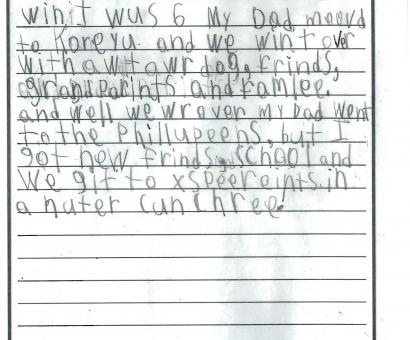 winit wus 6 My Dad moovd
to Koreyu. and we wint over
with awt awr dog, frinds,
grandparints and famlee.
and well we wr over my Dad went
to the Phillupeens, but I
got new frinds, school and
we git to xspeereints in
a nuter cunchree.